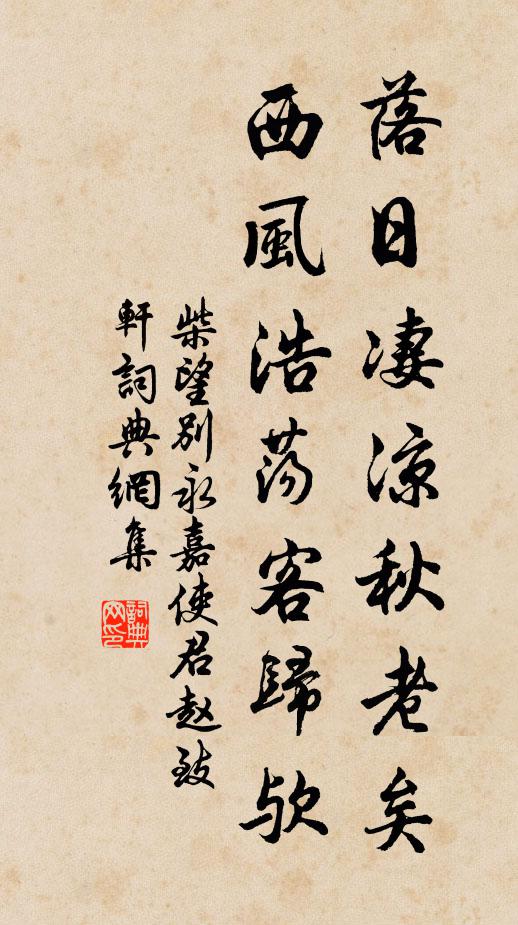 落日凄凉秋老矣
西風浩荡客歸欤
柴望别永嘉使君赵致
軒詞典網集
詞典
网印